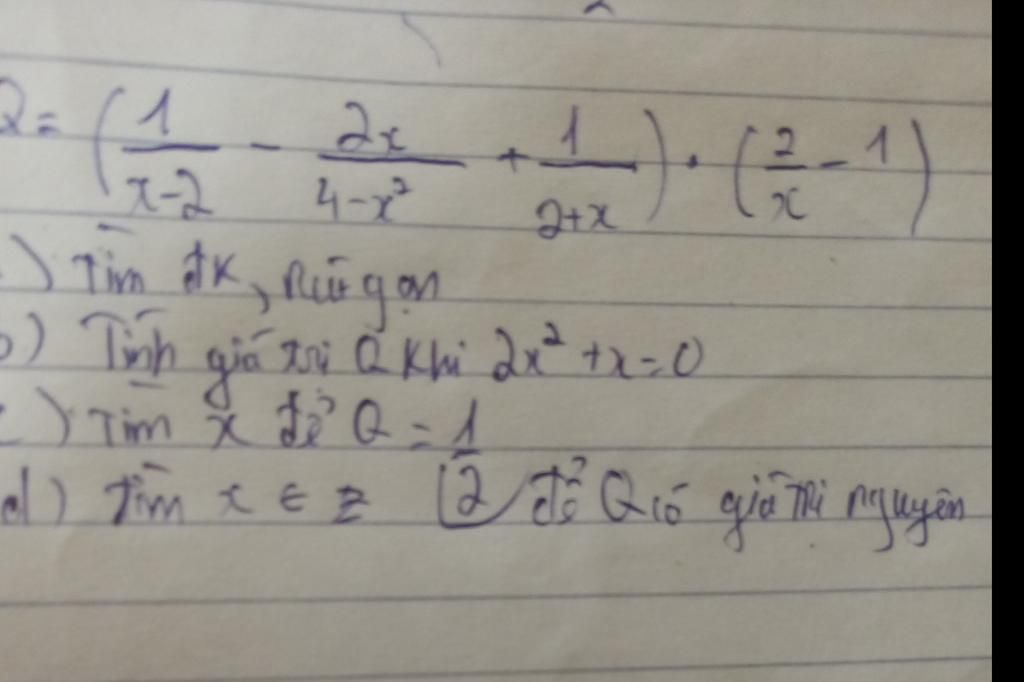 Q = ( 1/(x-2) - 2x/(4-x²) + 1/(2+x) ) . ( 2/x - 1 )
) Tìm đk, rút gọn
b) Tính giá trị Q khi 2x² + x = 0
c) Tìm x để Q = 1/2
d) Tìm x ∈ Z để Q có giá trị nguyên